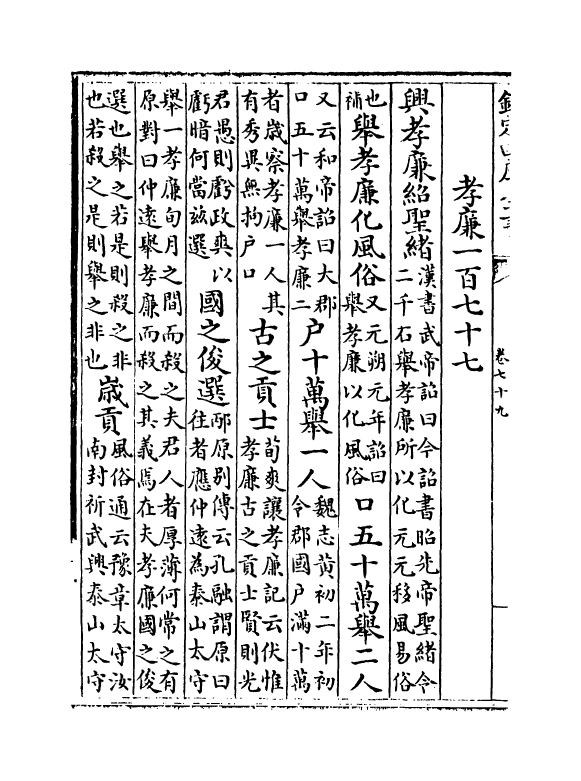 孝廉一百七十七
興孝廉紹聖緒漢書武帝詔曰今詔書昭先帝聖緒令
二千石舉孝廉所以化元元移風易俗
也
補舉孝廉化風俗又元朔元年詔曰
舉孝廉以化風俗口五十萬舉二人
又云和帝詔曰大郡
口五十萬舉孝廉二户十萬舉一人魏志黄初二年初
令郡國户滿十萬
者歲察孝廉一人其
有秀異無拘户口古之貢士荀爽讓孝廉記云伏惟
孝廉古之貢士賢則光
君愚則虧政爽以
虧暗何當該選國之俊選邴原别傳云孔融謂原曰
往者應仲遠為泰山太守
舉一孝廉旬月之間而殺之夫君人者厚薄何常之有
原對曰仲遠舉孝廉而殺之其義焉在夫孝廉國之俊
選也舉之若是則殺之非
也若殺之是則舉之非也歲貢風俗通云豫章太守汝
南封祈武興泰山太守
卷七十九